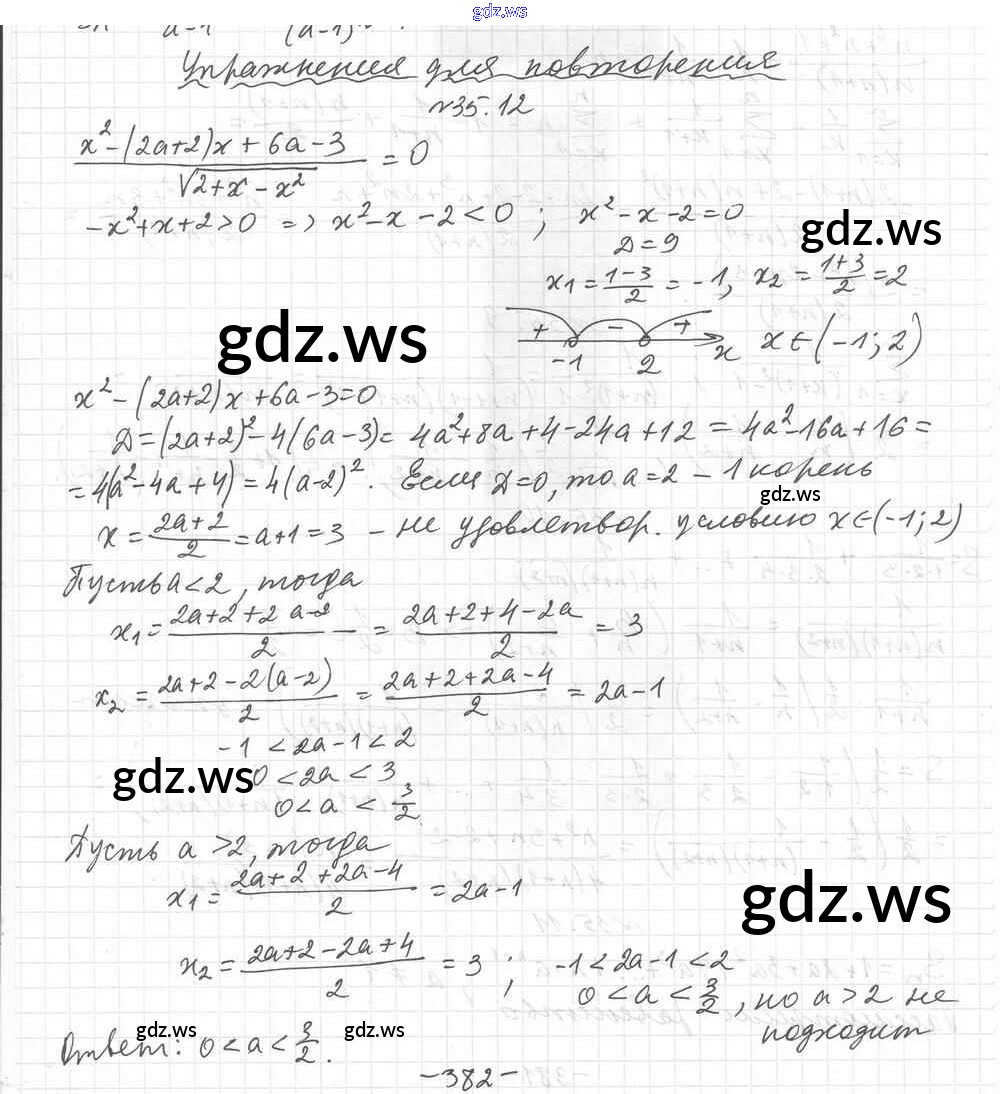 gdz.ws
a-1 (a-1)²
Упражнения для повторения
№35.12
(x²-(2a+2)x+6a-3)/√(2+x-x²) = 0
-x²+x+2>0 => x²-x-2<0 ; x²-x-2=0
gdz.ws
Д=9
x₁=(1-3)/2=-1, x₂=(1+3)/2=2
gdz.ws
+ - +
-1 2 x x∈(-1;2)
x²-(2a+2)x+6a-3=0
Д=(2a+2)²-4(6a-3)=4a²+8a+4-24a+12=4a²-16a+16=
=4(a²-4a+4)=4(a-2)². Если Д=0, то a=2 - 1 корень
gdz.ws
x=(2a+2)/2=a+1=3 - не удовлетвор. условию x∈(-1;2)
Пусть a<2, тогда
x₁=(2a+2+2 a-2)/2=(2a+2+4-2a)/2=3
x₂=(2a+2-2(a-2))/2=(2a+2+2a-4)/2=2a-1
-1<2a-1<2
gdz.ws
0<2a<3
0<a<3/2
Пусть a>2, тогда
x₁=(2a+2+2a-4)/2=2a-1
gdz.ws
x₂=(2a+2-2a+4)/2=3 ; -1<2a-1<2
0<a<3/2, но a>2 не
подходит
gdz.ws gdz.ws
Ответ: 0<a<3/2.
-382-